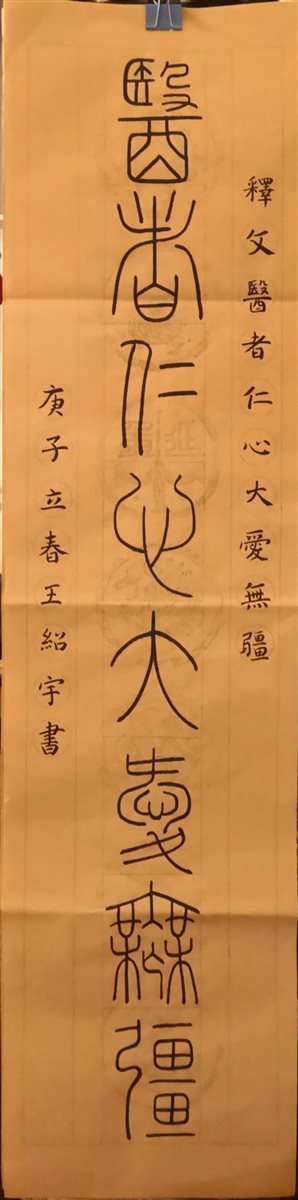 釋文醫者仁心大愛無疆
醫者仁心大愛無疆
庚子立春王紹宇書